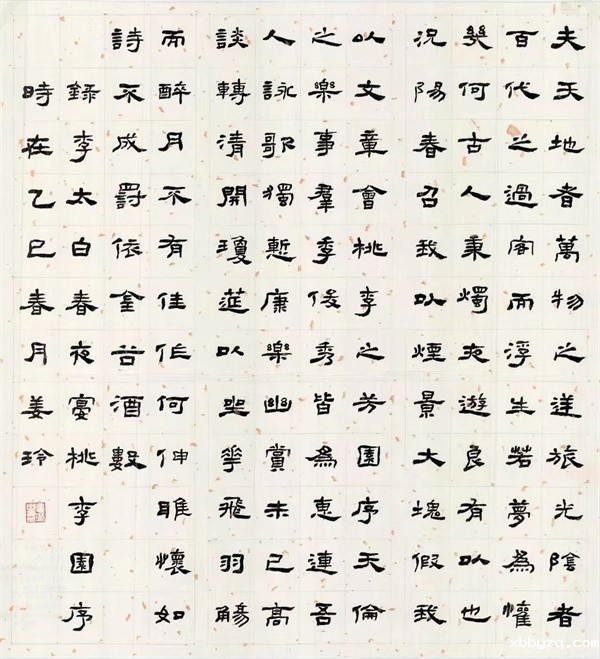 夫天地者萬物之逆旅光陰者
百代之過客而浮生若夢為懽
幾何古人秉燭夜遊良有以也
況陽春召我以煙景大塊假我
以文章會桃李之芳園序天倫
之樂事羣季俊秀皆為惠連吾
人詠歌獨慙康樂幽賞未已高
談轉清開瓊筵以坐花飛羽觴
而醉月不有佳作何伸雅懷如
詩不成罰依金谷酒數
錄李太白春夜宴桃李園序
時在乙巳春月姜玲
xbbyzq.com